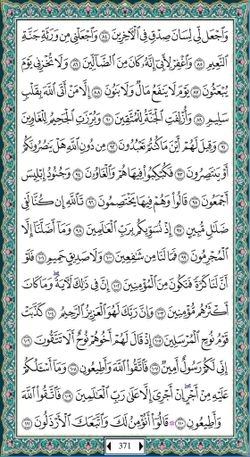 وَٱجْعَل لِّى لِسَانَ صِدْقٍ فِى ٱلْءَاخِرِينَ ٨٤ وَٱجْعَلْنِى مِن وَرَثَةِ جَنَّةِ
ٱلنَّعِيمِ ٨٥ وَٱغْفِرْ لِأَبِىٓ إِنَّهُۥ كَانَ مِنَ ٱلضَّآلِّينَ ٨٦ وَلَا تُخْزِنِى يَوْمَ
يُبْعَثُونَ ٨٧ يَوْمَ لَا يَنفَعُ مَالٌ وَلَا بَنُونَ ٨٨ إِلَّا مَنْ أَتَى ٱللَّهَ بِقَلْبٍ
سَلِيمٍ ٨٩ وَأُزْلِفَتِ ٱلْجَنَّةُ لِلْمُتَّقِينَ ٩٠ وَبُرِّزَتِ ٱلْجَحِيمُ لِلْغَاوِينَ
٩١ وَقِيلَ لَهُمْ أَيْنَ مَا كُنتُمْ تَعْبُدُونَ ٩٢ مِن دُونِ ٱللَّهِ هَلْ يَنصُرُونَكُمْ
أَوْ يَنتَصِرُونَ ٩٣ فَكُبْكِبُوا۟ فِيهَا هُمْ وَٱلْغَاوُۥنَ ٩٤ وَجُنُودُ إِبْلِيسَ
أَجْمَعُونَ ٩٥ قَالُوا۟ وَهُمْ فِيهَا يَخْتَصِمُونَ ٩٦ تَٱللَّهِ إِن كُنَّا لَفِى
ضَلَٰلٍ مُّبِينٍ ٩٧ إِذْ نُسَوِّيكُم بِرَبِّ ٱلْعَٰلَمِينَ ٩٨ وَمَآ أَضَلَّنَآ إِلَّا
ٱلْمُجْرِمُونَ ٩٩ فَمَا لَنَا مِن شَٰفِعِينَ ١٠٠ وَلَا صَدِيقٍ حَمِيمٍ ١٠١ فَلَوْ
أَنَّ لَنَا كَرَّةً فَنَكُونَ مِنَ ٱلْمُؤْمِنِينَ ١٠٢ إِنَّ فِى ذَٰلِكَ لَءَايَةً ۖ وَمَا كَانَ
أَكْثَرُهُم مُّؤْمِنِينَ ١٠٣ وَإِنَّ رَبَّكَ لَهُوَ ٱلْعَزِيزُ ٱلرَّحِيمُ ١٠٤ كَذَّبَتْ
قَوْمُ نُوحٍ ٱلْمُرْسَلِينَ ١٠٥ إِذْ قَالَ لَهُمْ أَخُوهُمْ نُوحٌ أَلَا تَتَّقُونَ ١٠٦
إِنِّى لَكُمْ رَسُولٌ أَمِينٌ ١٠٧ فَٱتَّقُوا۟ ٱللَّهَ وَأَطِيعُونِ ١٠٨ وَمَآ أَسْـَٔلُكُمْ
عَلَيْهِ مِنْ أَجْرٍ ۖ إِنْ أَجْرِىَ إِلَّا عَلَىٰ رَبِّ ٱلْعَٰلَمِينَ ١٠٩ فَٱتَّقُوا۟ ٱللَّهَ
وَأَطِيعُونِ ١١٠ ۞ قَالُوٓا۟ أَنُؤْمِنُ لَكَ وَٱتَّبَعَكَ ٱلْأَرْذَلُونَ ١١١
371